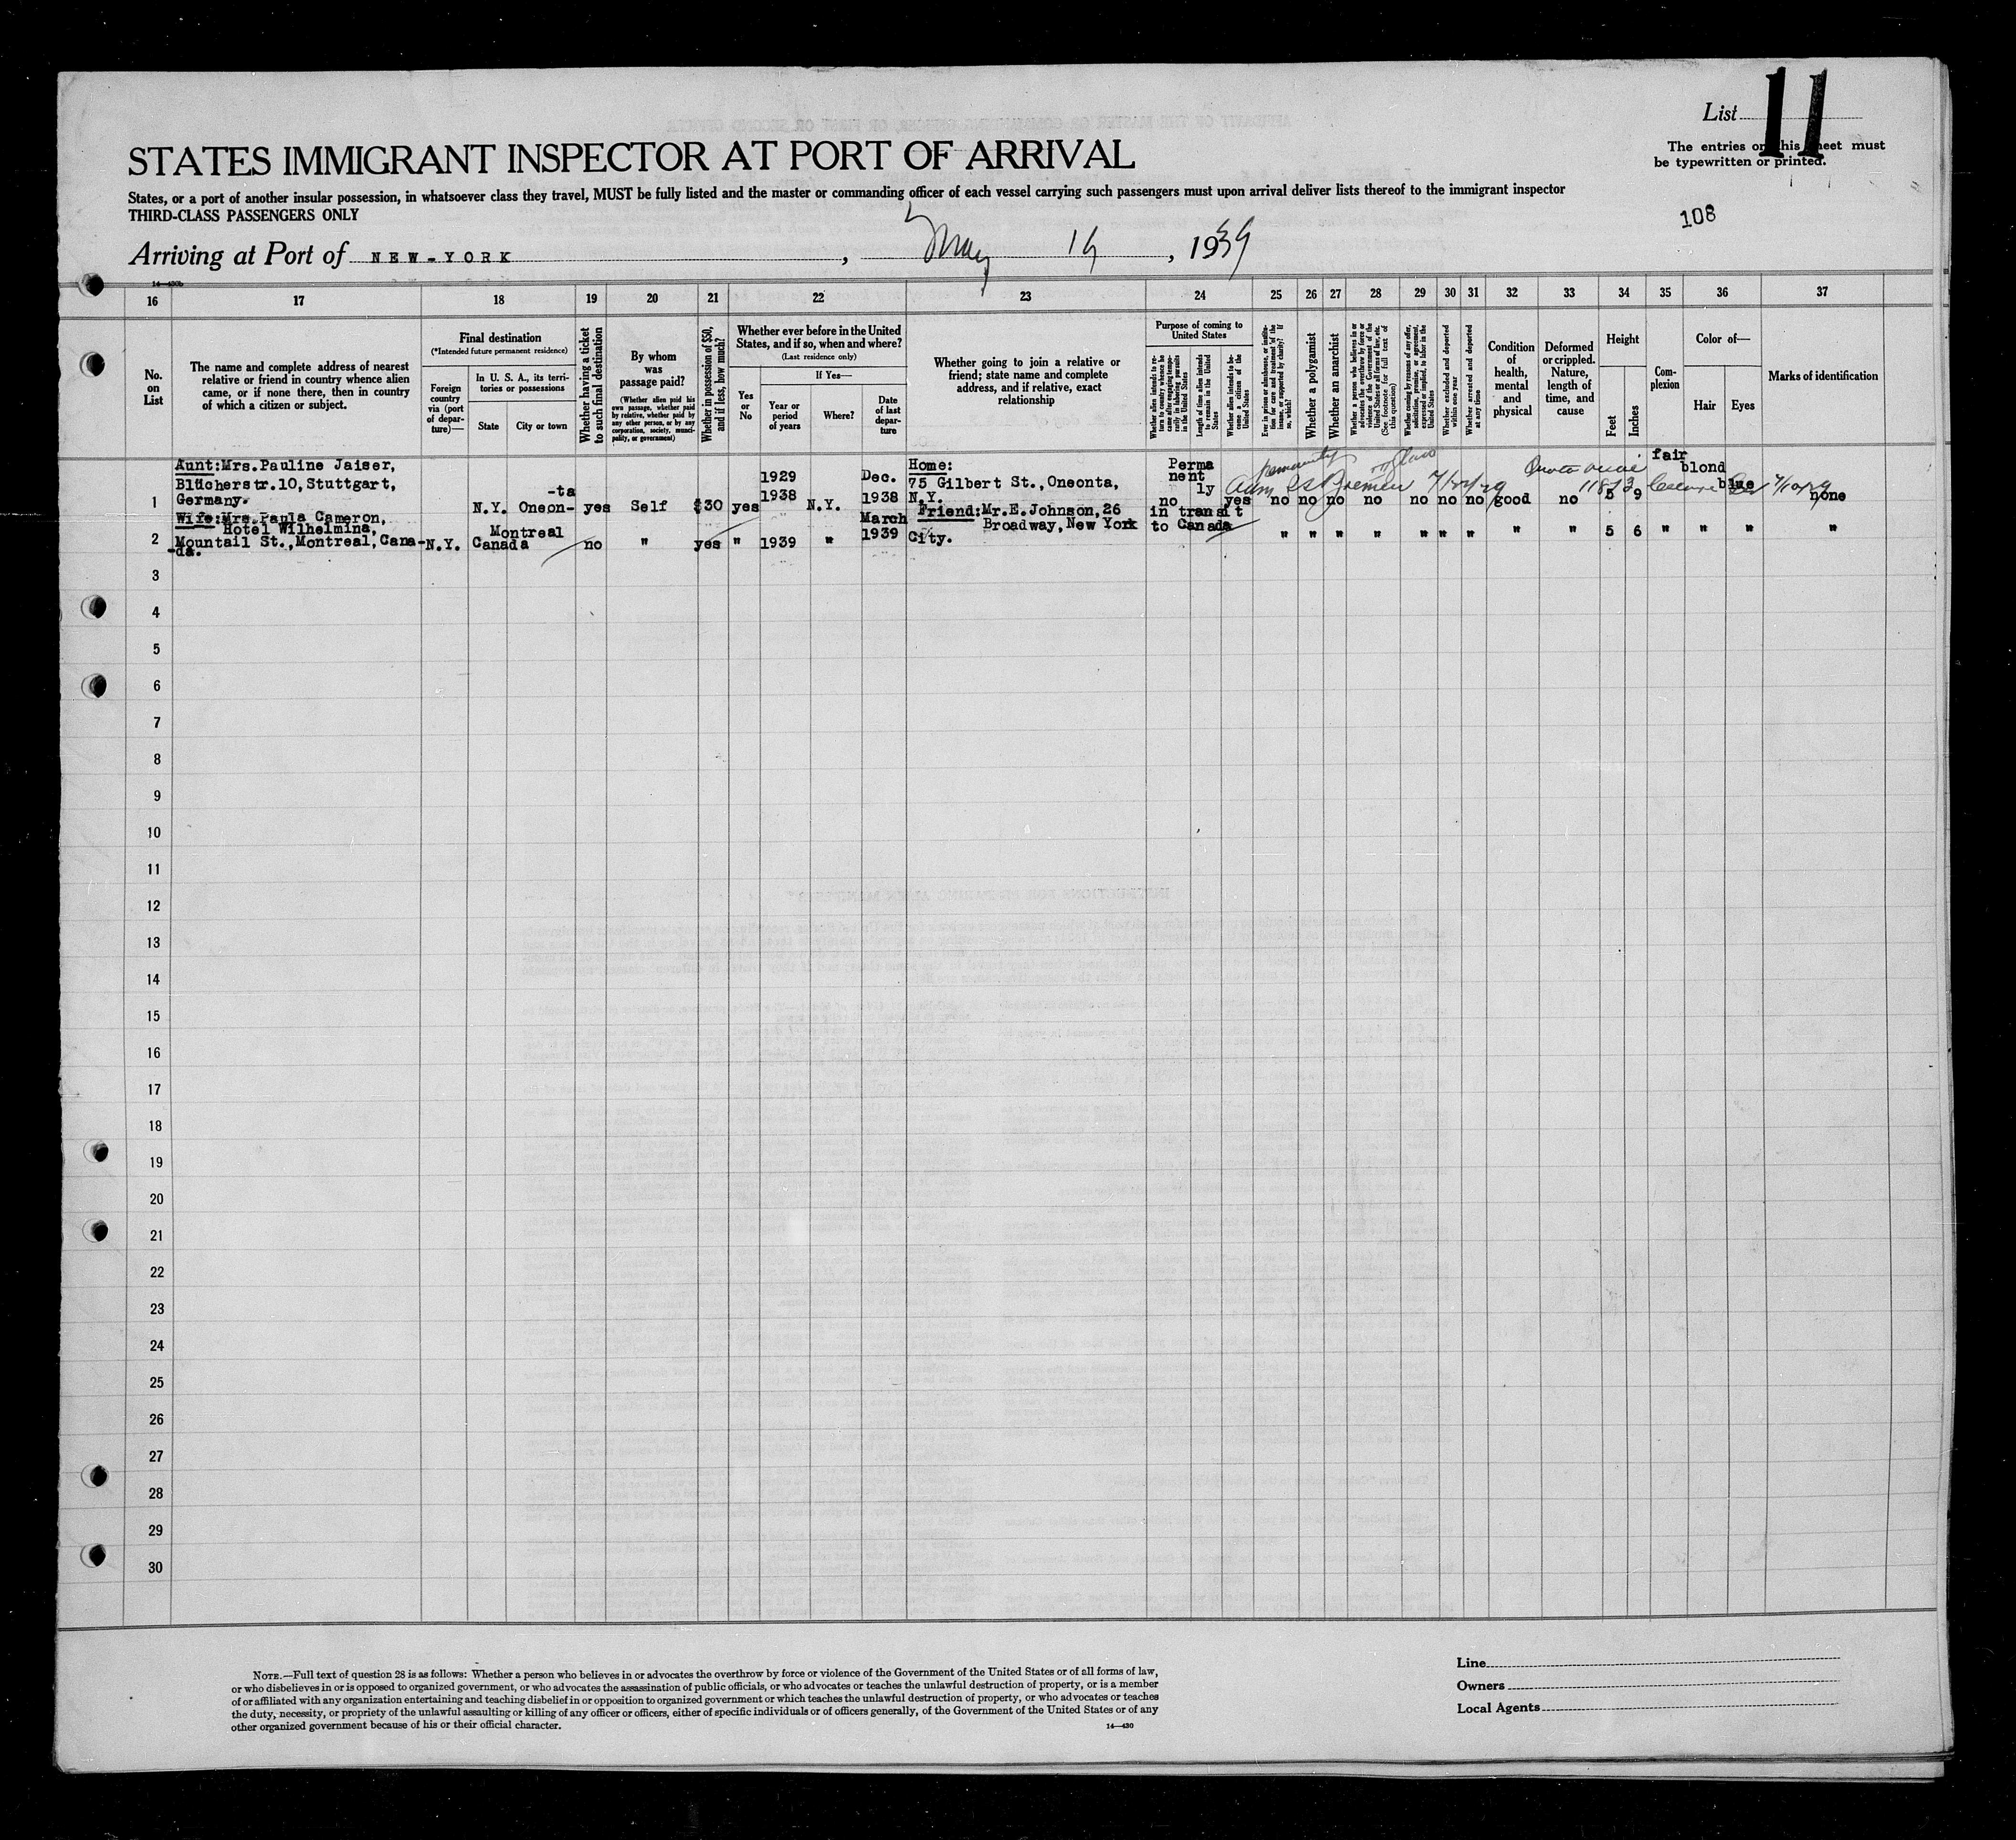 List 11
The entries on this sheet must
be typewritten or printed.
108
STATES IMMIGRANT INSPECTOR AT PORT OF ARRIVAL
States, or a port of another insular possession, in whatsoever class they travel, MUST be fully listed and the master or commanding officer of each vessel carrying such passengers must upon arrival deliver lists thereof to the immigrant inspector
THIRD-CLASS PASSENGERS ONLY
Arriving at Port of NEW-YORK, May 19, 1939
16 17 18 19 20 21 22 23 24 25 26 27 28 29 30 31 32 33 34 35 36 37
No. on List
The name and complete address of nearest
relative or friend in country whence alien
came, or if none there, then in country
of which a citizen or subject.
Final destination
(*Intended future permanent residence)
Foreign country via (port of departure)—
In U. S. A., its territories or possessions
State
City or town
Whether having a ticket to such final destination
By whom was passage paid?
(Whether alien paid his own passage, whether paid by relative, whether paid by any other person, or by any corporation, society, municipality, or government)
Whether in possession of $50, and if less, how much?
Whether ever before in the United
States, and if so, when and where?
(Last residence only)
Yes or No
If Yes—
Year or period of years
Where?
Date of last departure
Whether going to join a relative or
friend; state name and complete
address, and if relative, exact
relationship
Purpose of coming to
United States
Whether alien intends to return to country whence he came after engaging temporarily in laboring pursuits in the United States
Length of time alien intends to remain in the United States
Whether alien intends to become a citizen of the United States
Ever in prison or almshouse, or institution for care and treatment of the insane, or supported by charity? If so, which?
Whether a polygamist
Whether an anarchist
Whether a person who believes in or advocates the overthrow by force or violence of the Government of the United States or all forms of law, etc. (See footnote for full text of this question)
Whether coming by reasons of any offer, solicitation, promise, or agreement, expressed or implied, to labor in the United States
Whether excluded and deported within one year
Whether arrested and deported at any time
Condition of health, mental and physical
Deformed or crippled. Nature, length of time, and cause
Height
Feet
Inches
Complexion
Color of—
Hair
Eyes
Marks of identification
1 Aunt:Mrs.Pauline Jaiser,
Blücherstr.10,Stuttgart,
Germany. N.Y. Oneon-ta yes Self $30 yes 1929 1938 N.Y. Dec. 1938 Home: 75 Gilbert St.,Oneonta, N.Y. no Permanently yes no no no no no no no good no 5 9 fair blond blue none
2 Wife:Mrs.Paula Cameron,
Hotel Wilhelmina,
Mountail St.,Montreal,Cana-
-da. N.Y. Montreal Canada no " yes " 1939 " March 1939 Friend:Mr.E.Johnson,26 Broadway,New York City. in transit to Canada " " " " " " " " " 5 6 " " " "
3
4
5
6
7
8
9
10
11
12
13
14
15
16
17
18
19
20
21
22
23
24
25
26
27
28
29
30
NOTE.—Full text of question 28 is as follows: Whether a person who believes in or advocates the overthrow by force or violence of the Government of the United States or of all forms of law,
or who disbelieves in or is opposed to organized government, or who advocates the assassination of public officials, or who advocates or teaches the unlawful destruction of property, or is a member
of or affiliated with any organization entertaining and teaching disbelief in or opposition to organized government or which teaches the unlawful destruction of property, or who advocates or teaches
the duty, necessity, or propriety of the unlawful assaulting or killing of any officer or officers, either of specific individuals or of officers generally, of the Government of the United States or of any
other organized government because of his or their official character.
14—430
Line
Owners
Local Agents